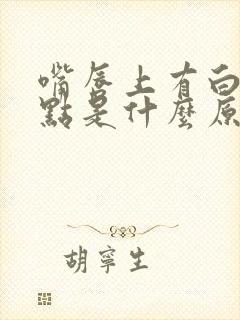 嘴唇上有白
點是什麼原
胡寧生